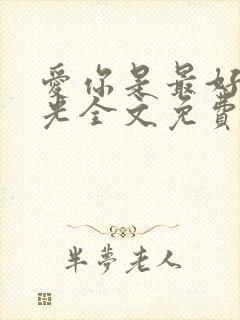 愛你是最好
光全文免費
半夢老人